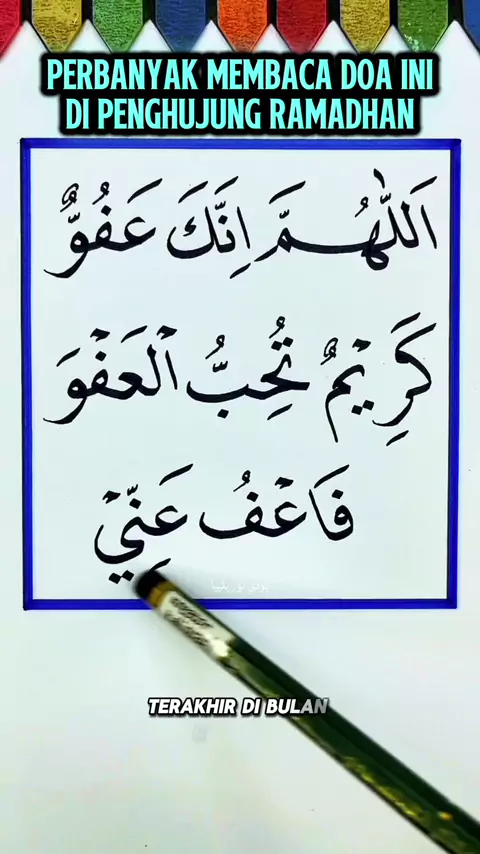 PERBANYAK MEMBACA DOA INI
DI PENGHUJUNG RAMADHAN
اَللّٰهُمَّ اِنَّكَ عَفُوٌّ
كَرِيْمٌ تُحِبُّ الْعَفْوَ
فَاعْفُ عَنِّيْ
TERAKHIR DI BULAN